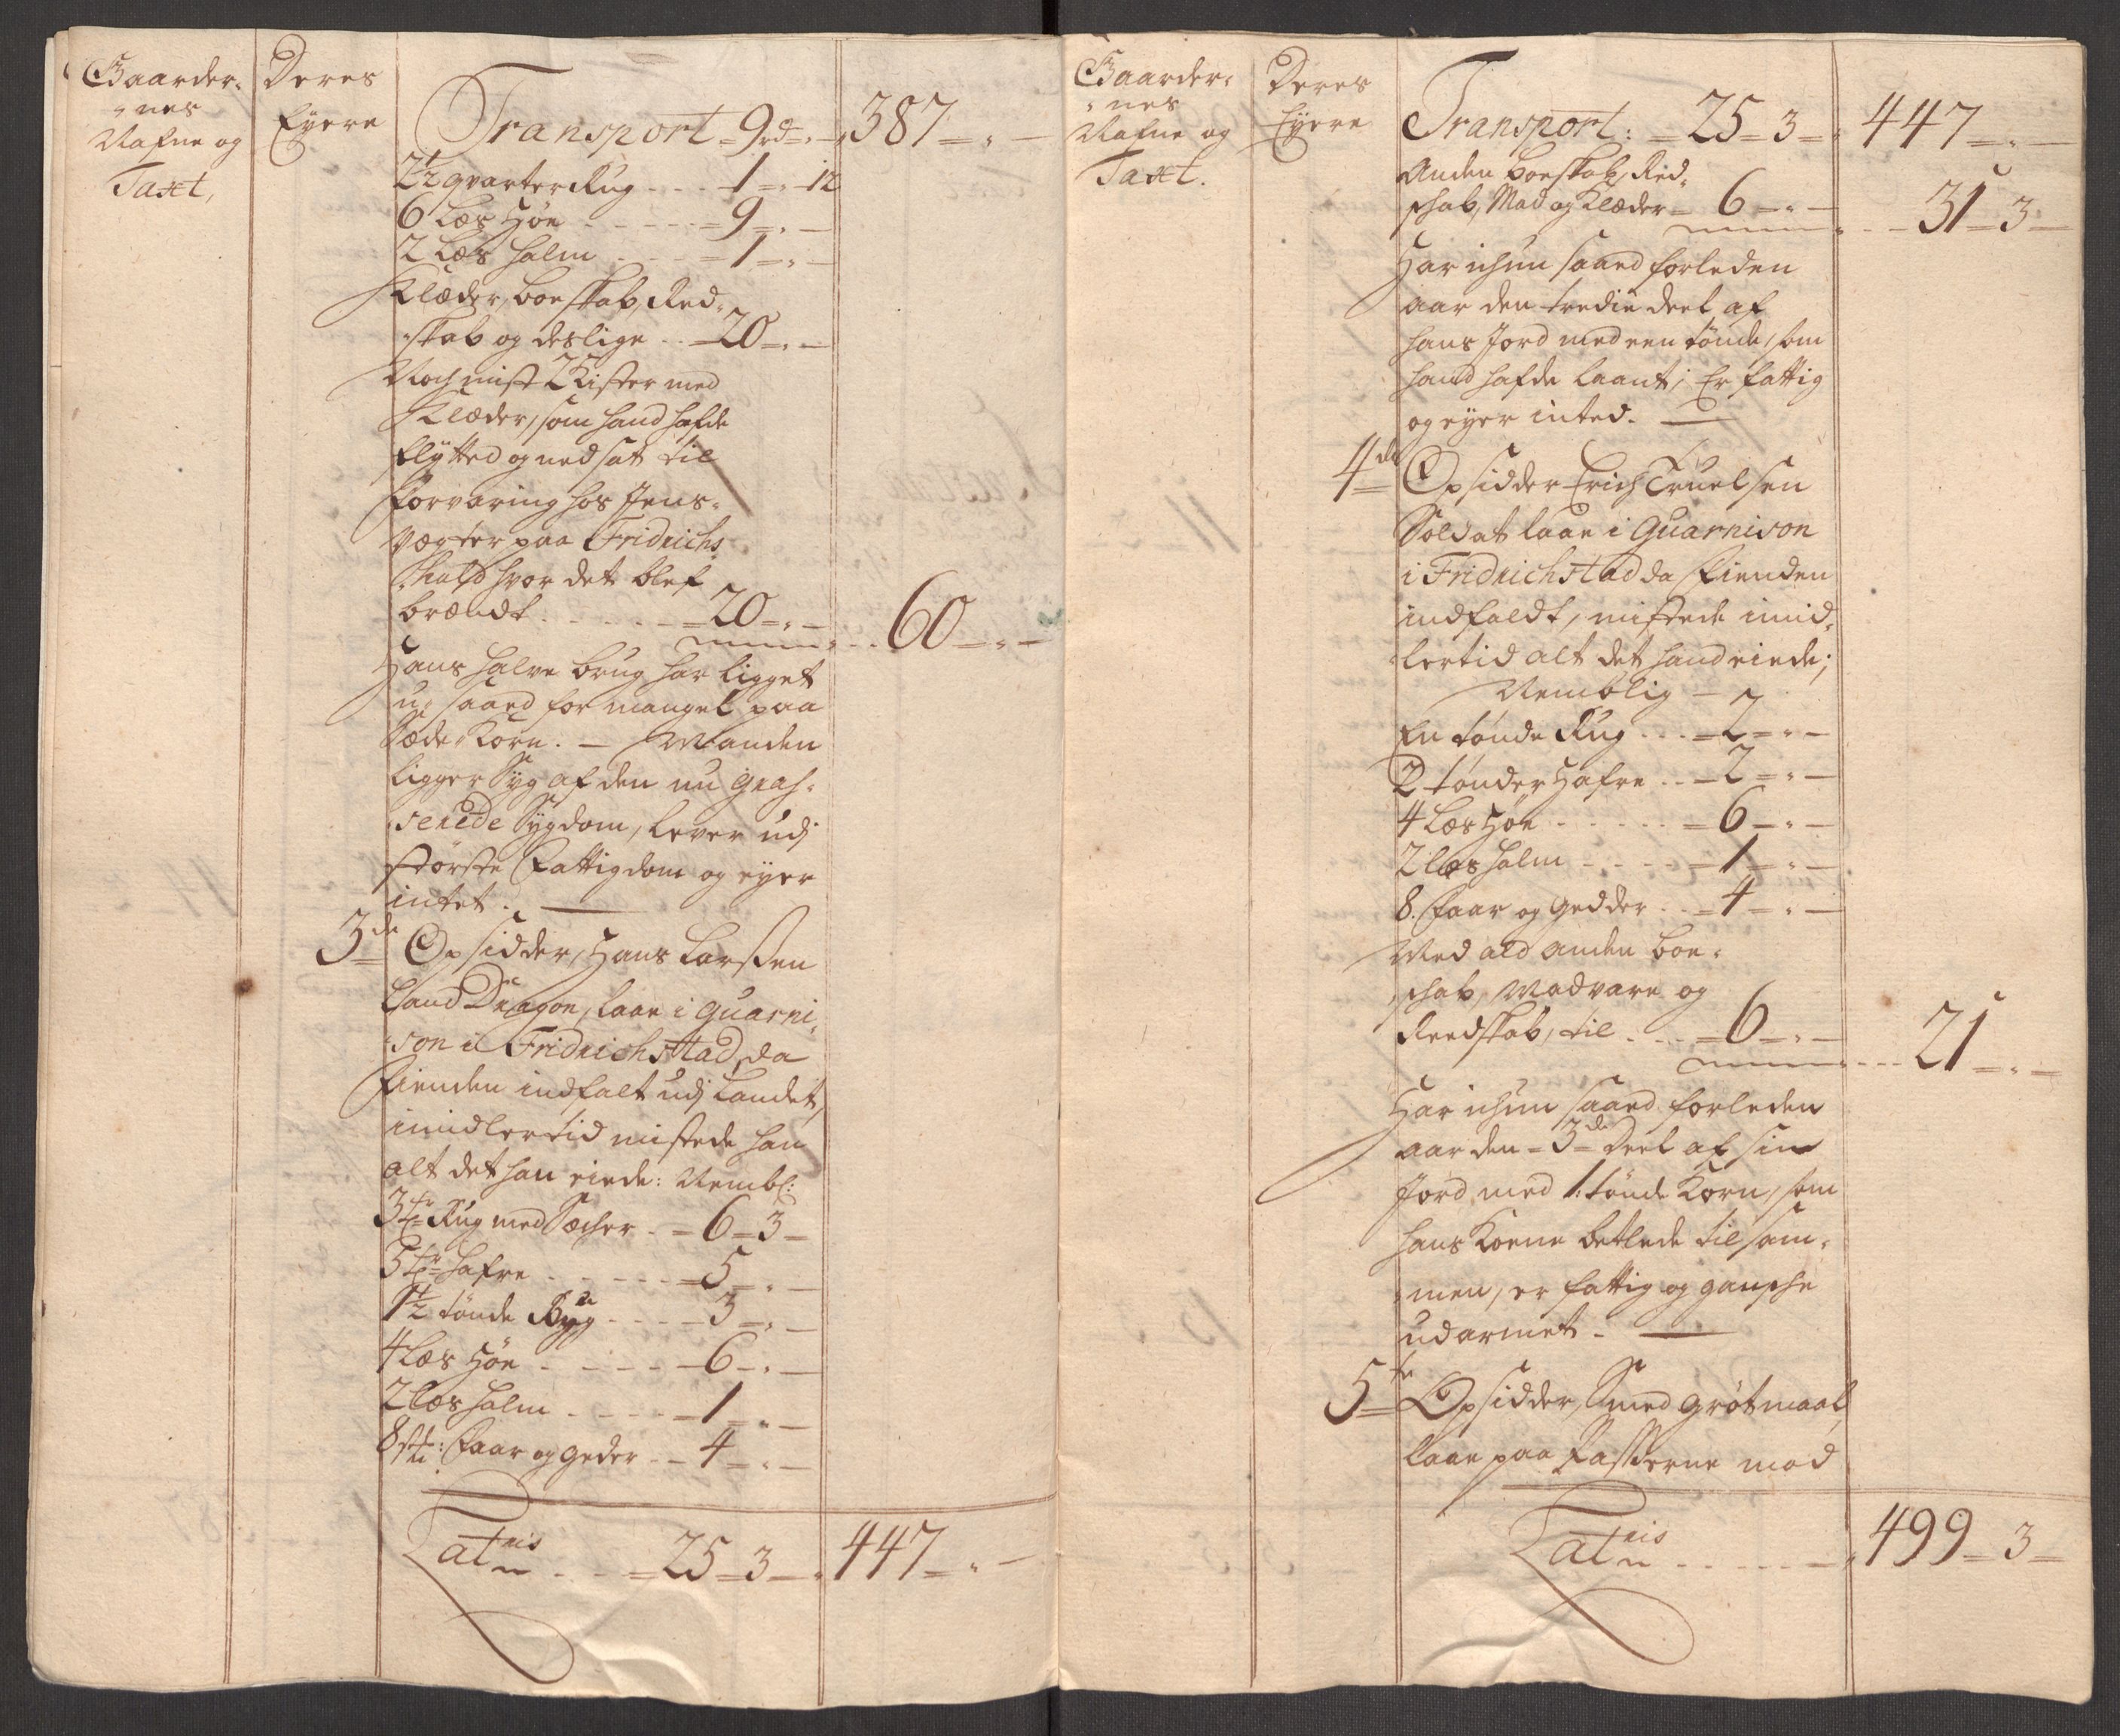 Gaarder-
nes
Nafne og
Taxt,
Deres
Eyere
Transport = 9 rd = " — 387 — " —
2½ qvarter Rug - - - 1 = " - 12
6 Læs Høe - - - - - = 9 = " —
2 Læs halm - - - = 1 = " —
Klæder, boeskab, Red-
skab og deslige - - 20 = " —
Noch mist 2 Kister med
Klæder, som hand hafde
flytted og nedsat til
Forvaring hos Jens
Vegter paa Fridrichs
hald hvor det blef
brændt - - - - - = 20 = " — - - 60 — " —
Hans halve brug har ligget
u-saaed for mangel paa
Sæde-Korn. — Manden
ligger Syg af den nu gras-
serede Sygdom, lever udj
største Fattigdom og eyer
intet. —
3de Opsidder, Hans Larssen
Land Dragon, laae i Guarni-
son i Fridrichstad, da
Fienden indfalt udj Landet,
imidlertid mistede han
alt det han eiede: Nembl:
3 tr Rug med Sæcher - = 6 = 3 —
5 tr hafre - - - - - = 5 = " —
1½ tønde Byg - - - - 3 = " —
4 Læs Høe - - - - - 6 - " —
2 læs halm - - - - - 1 = " —
8 st: Faar og geder - - 4 = " —
Latris - - = 25 = 3 — " 447 = " —
Gaarder-
nes
Nafne og
Taxt.
Deres
Eyere
Transport: = 25 = 3 — " 447 — " —
Anden boeskab, Red-
schab, Mad og Klæder - 6 — " — - - 31 = 3 —
Har ichun saaed forleden
aar den tredie deel af
hans Jord med een tønde, som
hand hafde laant; Er fattig
og eyer inted. —
4de Opsidder Erich Truelsen
Soldat laae i Guarnison
i Fridrichstad da Fienden
indfaldt, mistede imid-
lertid alt det hand eiede;
Nemblig —
En tønde Rug - - - = 2 = " —
2 tønder Hafre - - - 2 = " —
4 Læs Høe - - - - - = 6 — " —
2 læs halm - - - - = 1 = " —
8. Faar og gedder - - = 4 = " —
Med ald anden boe-
schab, Madvare og
Reedskab, til - - - = 6 = " — - - - 21 = " —
Har ichun saaed forleden
aar den = 3de Deel af sin
Jord med 1: tønde Korn, som
hans Kone betlede til sam-
men, er fattig og gansche
udarmet. —
5te Opsidder, Smed Grøtmaal,
laae paa Passerne mod
Latris - - - - - " 499 = 3 —